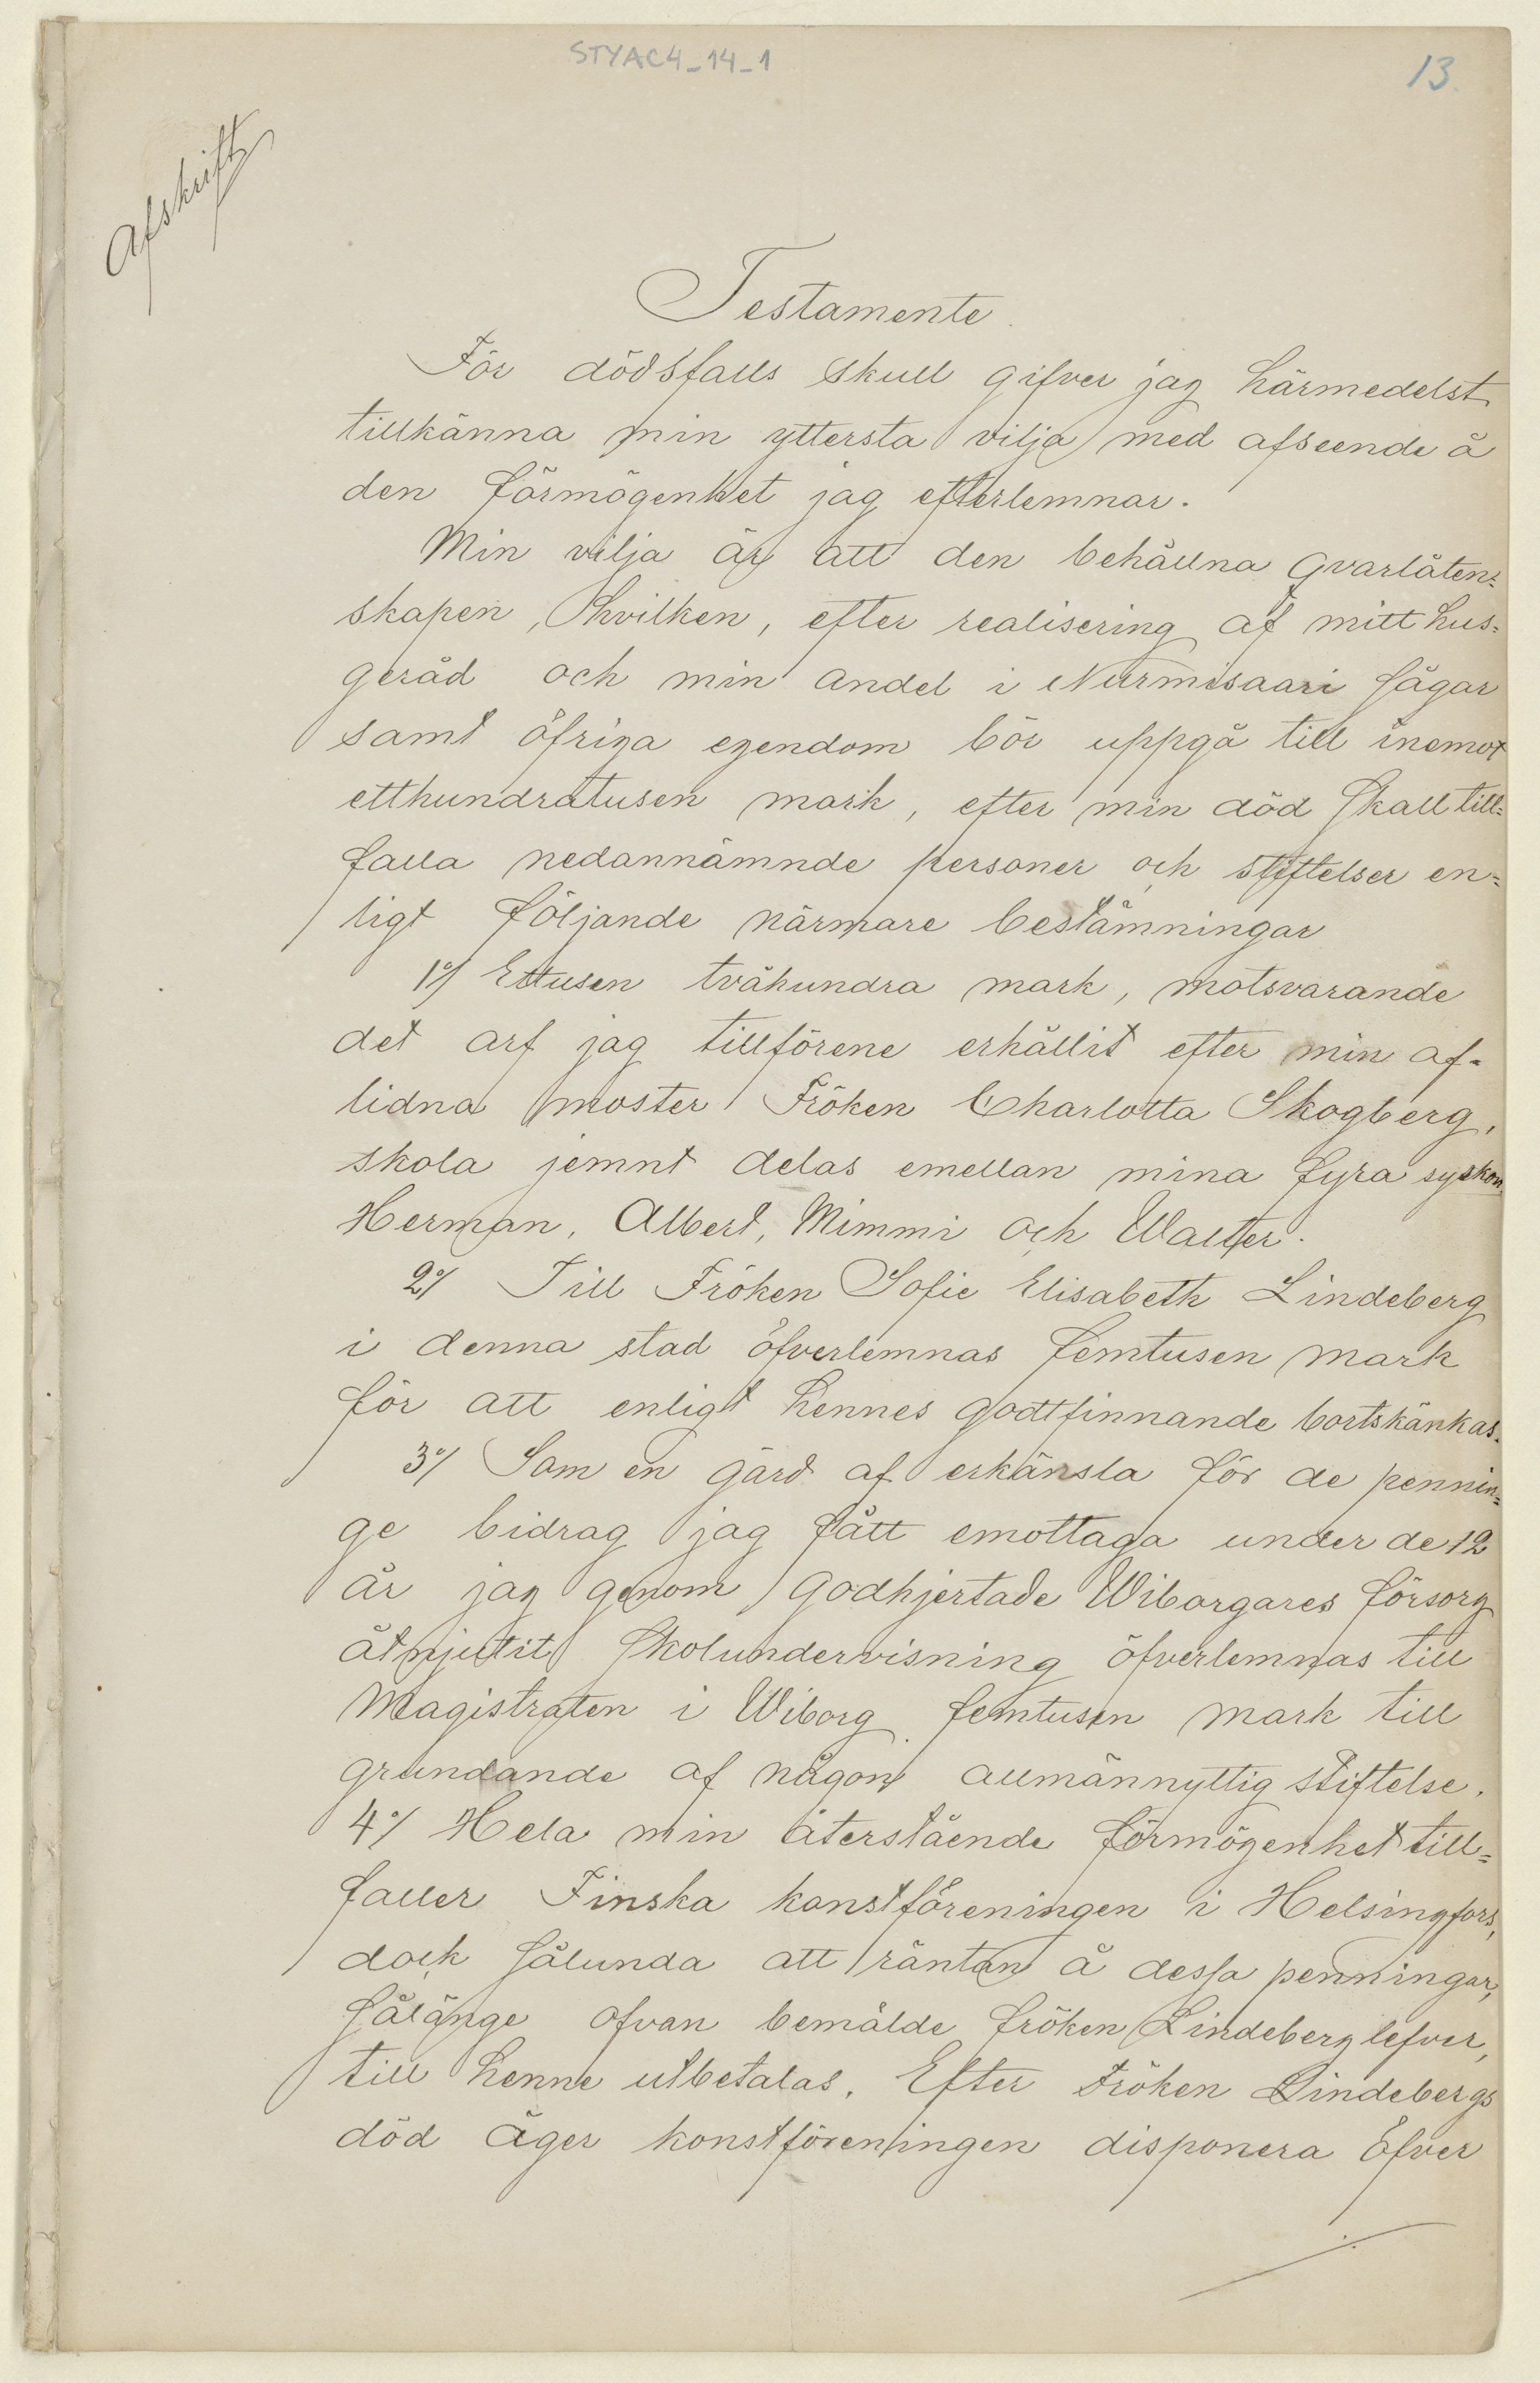 STYAC4_14_1
13.
Afskrift
Testamente.
För dödsfalls skull gifver jag härmedelst
tillkänna min yttersta vilja med afseende å
den förmögenhet jag efterlemnar.
Min vilja är att den behållna qvarlåten=
skapen, hvilken, efter realisering af mitt hus=
geråd och min andel i Nurmisaari sågar
samt öfriga egendom bör uppgå till inemot
etthundratusen mark, efter min död skall till=
falla nedannämnde personer och stiftelser en=
ligt följande närmare bestämningar
1o/ Ettusen tvåhundra mark, motsvarande
det arf jag tillförene erhållit efter min af=
lidna moster Fröken Charlotta Skogberg,
skola jemnt delas emellan mina fyra syskon,
Herman, Albert, Mimmi och Walter.
2o/ Till Fröken Sofie Elisabeth Lindeberg
i denna stad öfverlemnas femtusen mark
för att enligt hennes godtfinnande bortskänkas.
3o/ Som en gärd af erkänsla för de pennin=
ge bidrag jag fått emottaga under de 12
år jag genom godhjertade Wiborgares försorg
åtnjutit skolundervisning öfverlemnas till
Magistraten i Wiborg femtusen mark till
grundande af någon allmännyttig stiftelse.
4o/ Hela min återstående förmögenhet till=
faller Finska konstföreningen i Helsingfors,
dock sålunda att räntan å dessa penningar,
sålänge ofvan bemälde fröken Lindeberg lefver,
till henne utbetalas. Efter Fröken Lindebergs
död äger konstföreningen disponera öfver
./.